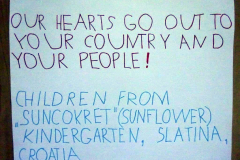 OUR HEARTS GO OUT TO
YOUR COUNTRY AND
YOUR PEOPLE!
CHILDREN FROM
„SUNCOKRET"(SUNFLOWER)
KINDERGARTEN, SLATINA,
CROATIA